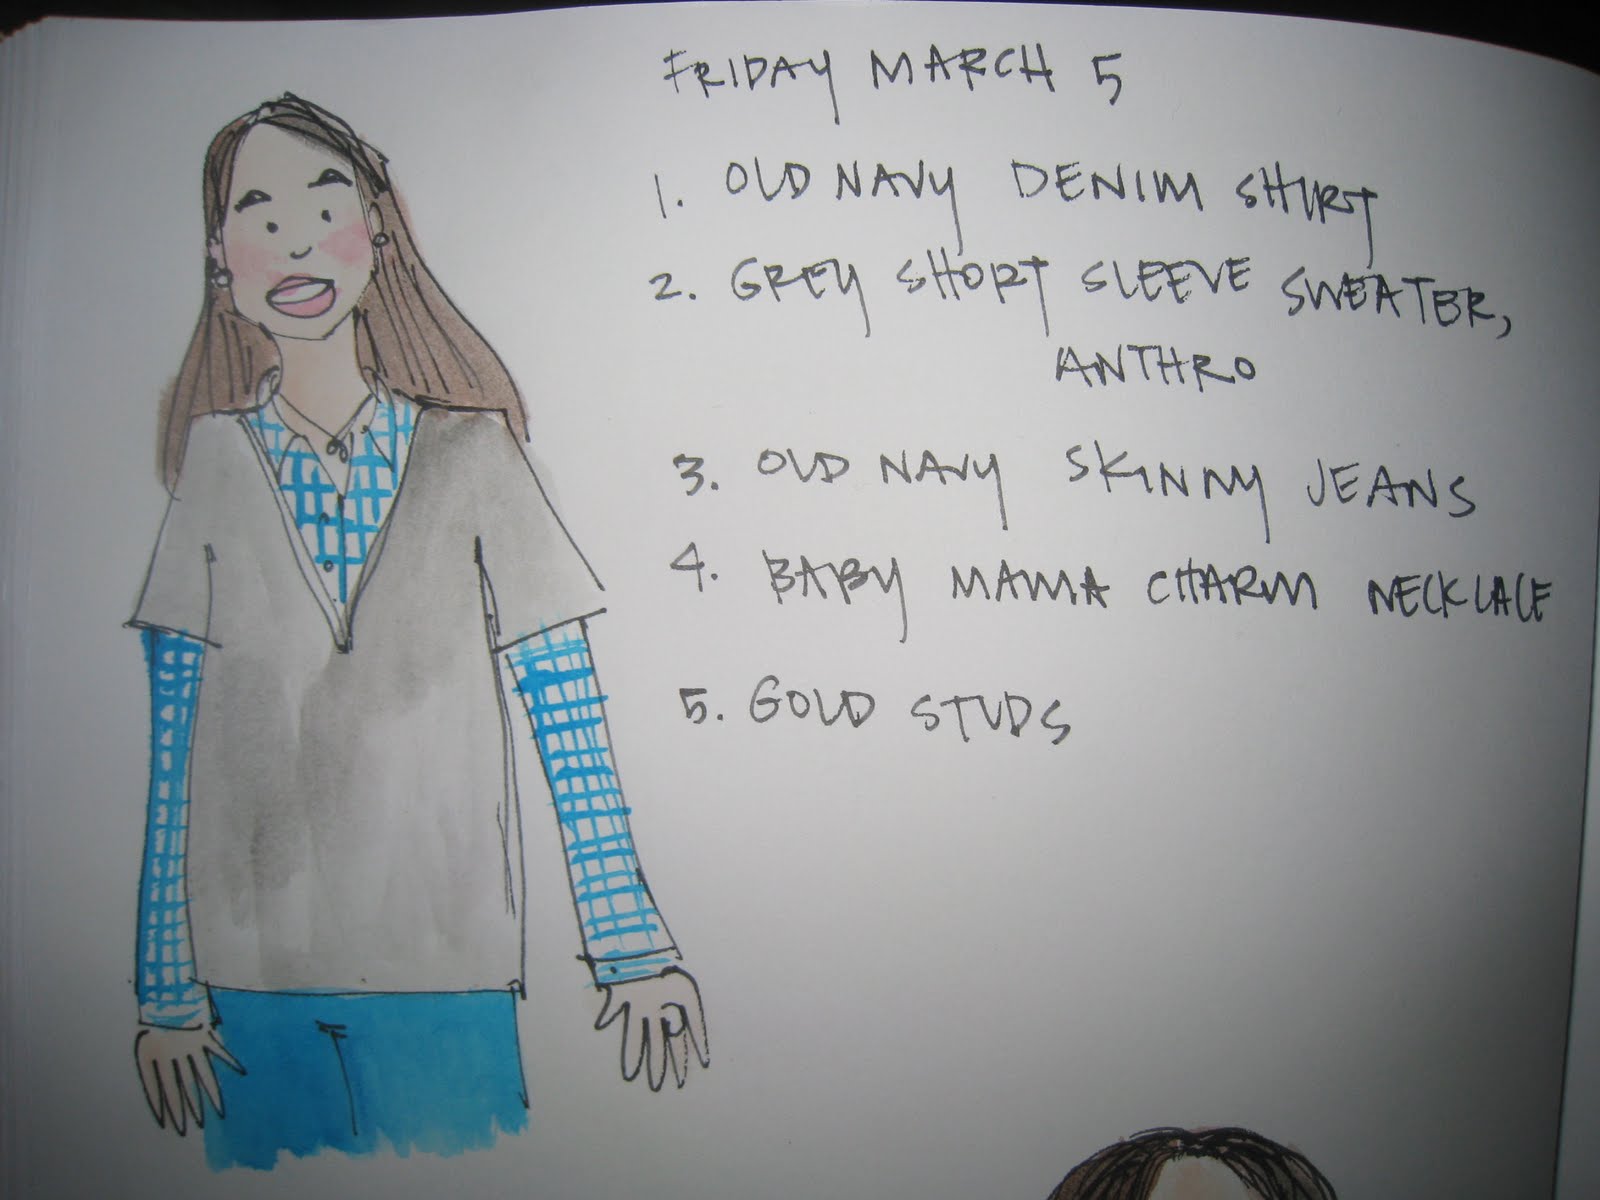 FRIDAY MARCH 5
1. OLD NAVY DENIM SHIRT
2. GREY SHORT SLEEVE SWEATER,
ANTHRO
3. OLD NAVY SKINNY JEANS
4. BABY MAMA CHARM NECKLACE
5. GOLD STUDS